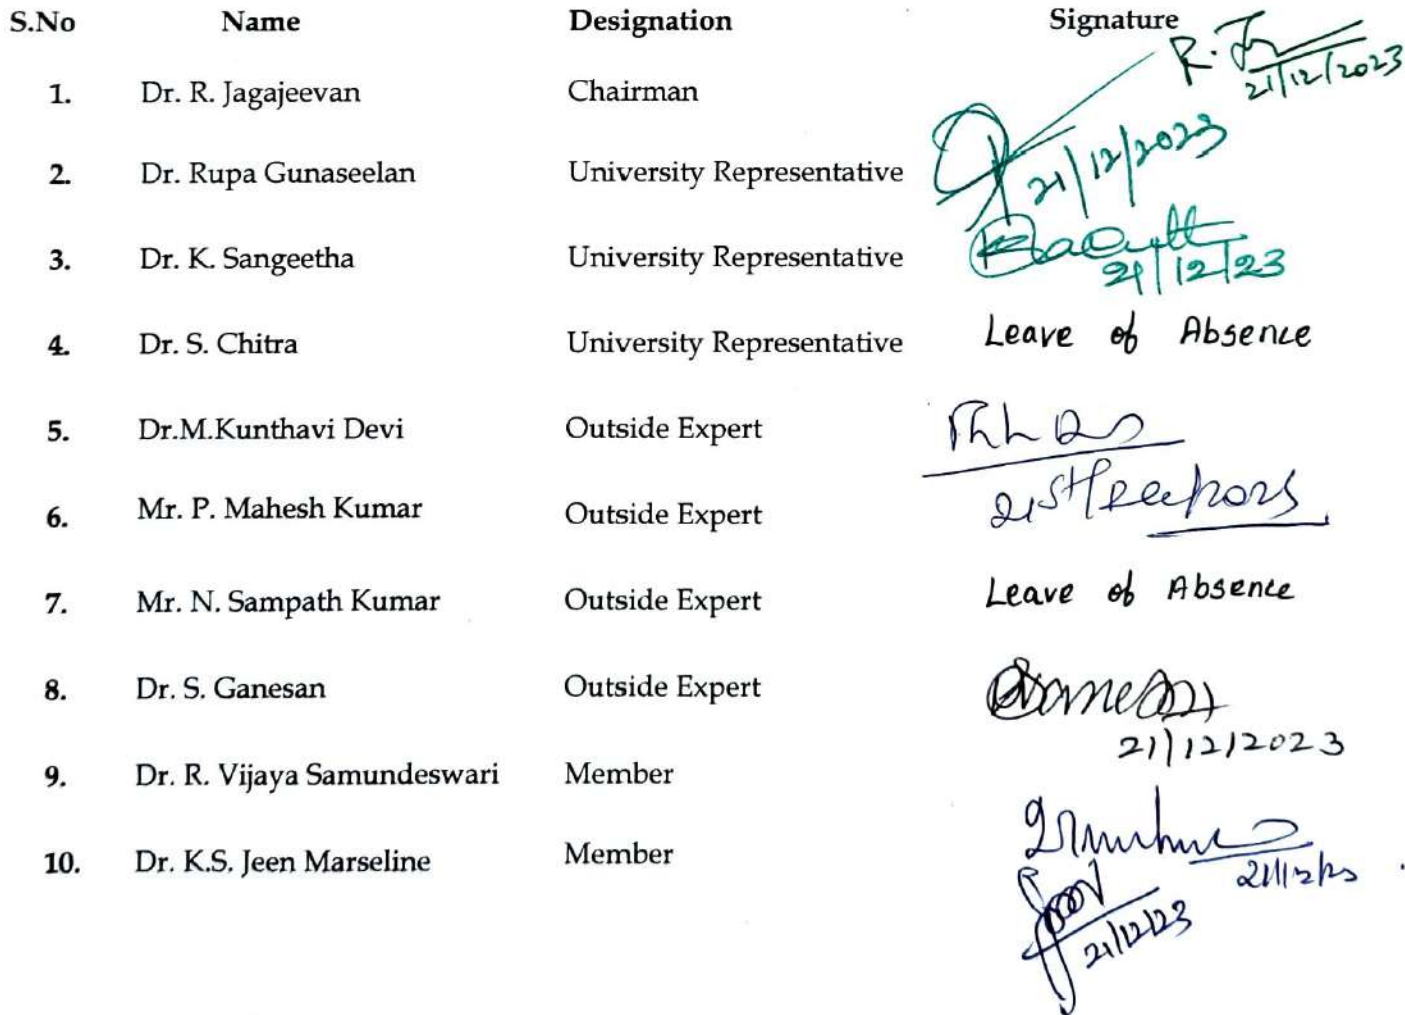 S.No Name Designation Signature
1. Dr. R. Jagajeevan Chairman R. 21/12/2023
2. Dr. Rupa Gunaseelan University Representative 21/12/2023
3. Dr. K. Sangeetha University Representative 21/12/23
4. Dr. S. Chitra University Representative Leave of Absence
5. Dr.M.Kunthavi Devi Outside Expert
6. Mr. P. Mahesh Kumar Outside Expert
7. Mr. N. Sampath Kumar Outside Expert Leave of Absence
8. Dr. S. Ganesan Outside Expert
21/12/2023
9. Dr. R. Vijaya Samundeswari Member
10. Dr. K.S. Jeen Marseline Member
21/12/23